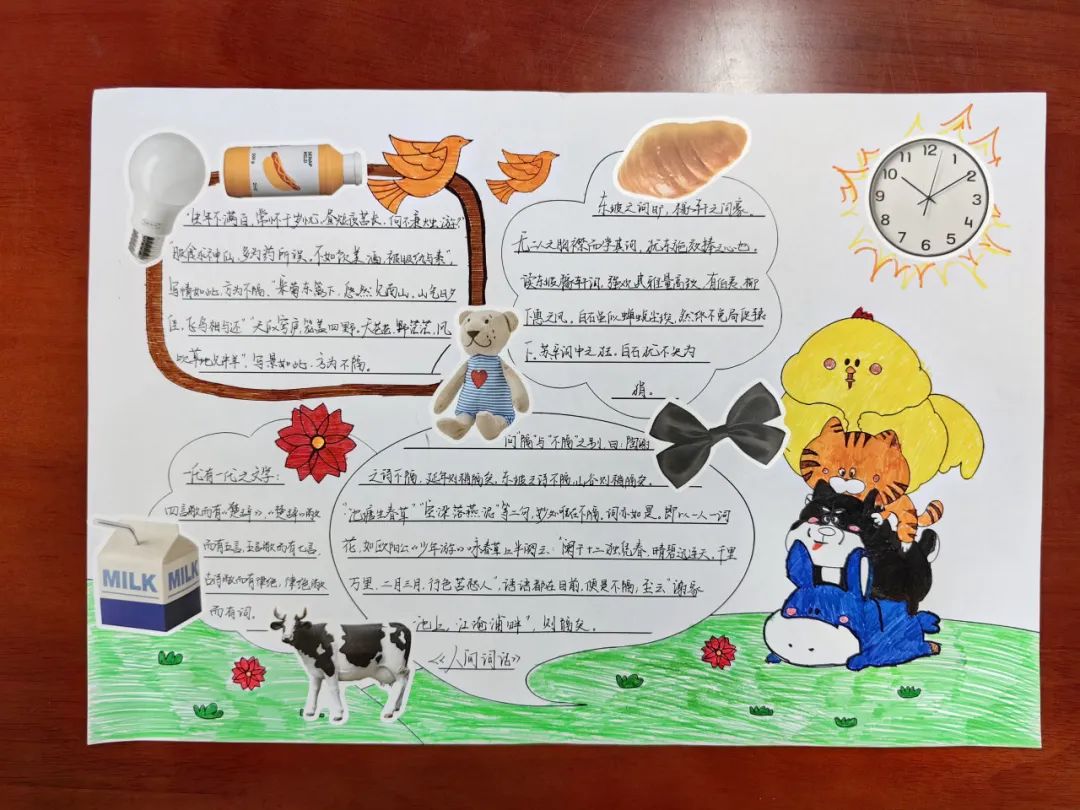 "生年不满百，常怀千岁忧，昼短夜苦长，何不秉烛游？"
"服食求神仙，多为药所误，不如饮美酒，被服纨与素"，
写情如此，方为不隔。"采菊东篱下，悠然见南山，山气日夕
佳，飞鸟相与还""天似穹庐，笼盖四野。天苍苍，野茫茫，风
吹草地见牛羊"，写景如此，方为不隔。
东坡之词旷，稼轩之词豪。
无二人之胸襟而学其词，犹东施效捧心也。
读东坡稼轩词，其雅量高致，有伯夷、柳
下惠之风。白石虽似蝉蜕尘埃，然终不免局促辕
下。苏辛词中之狂。白石犹不失为
狷。
一代有一代之文学：
四言敝而有《楚辞》，《楚辞》敝
而有五言，五言敝而有七言，
古诗敝而有律绝，律绝敝
而有词。
问"隔"与"不隔"之别，曰：陶谢
之诗不隔，延年则稍隔矣。东坡之诗不隔，山谷则稍隔矣。
"池塘生春草""空梁落燕泥"等二句，妙处唯在不隔，词亦如是。即以一人一词
论，如欧阳公《少年游》咏春草上半阕云："阑干十二独凭春，晴碧远连天，千里
万里，二月三月，行色苦愁人"，语语都在目前，便是不隔，至云"谢家
池上，江淹浦畔"，则隔矣。
《人间词话》
MILK
MILK
12
1
2
3
4
5
6
7
8
9
10
11